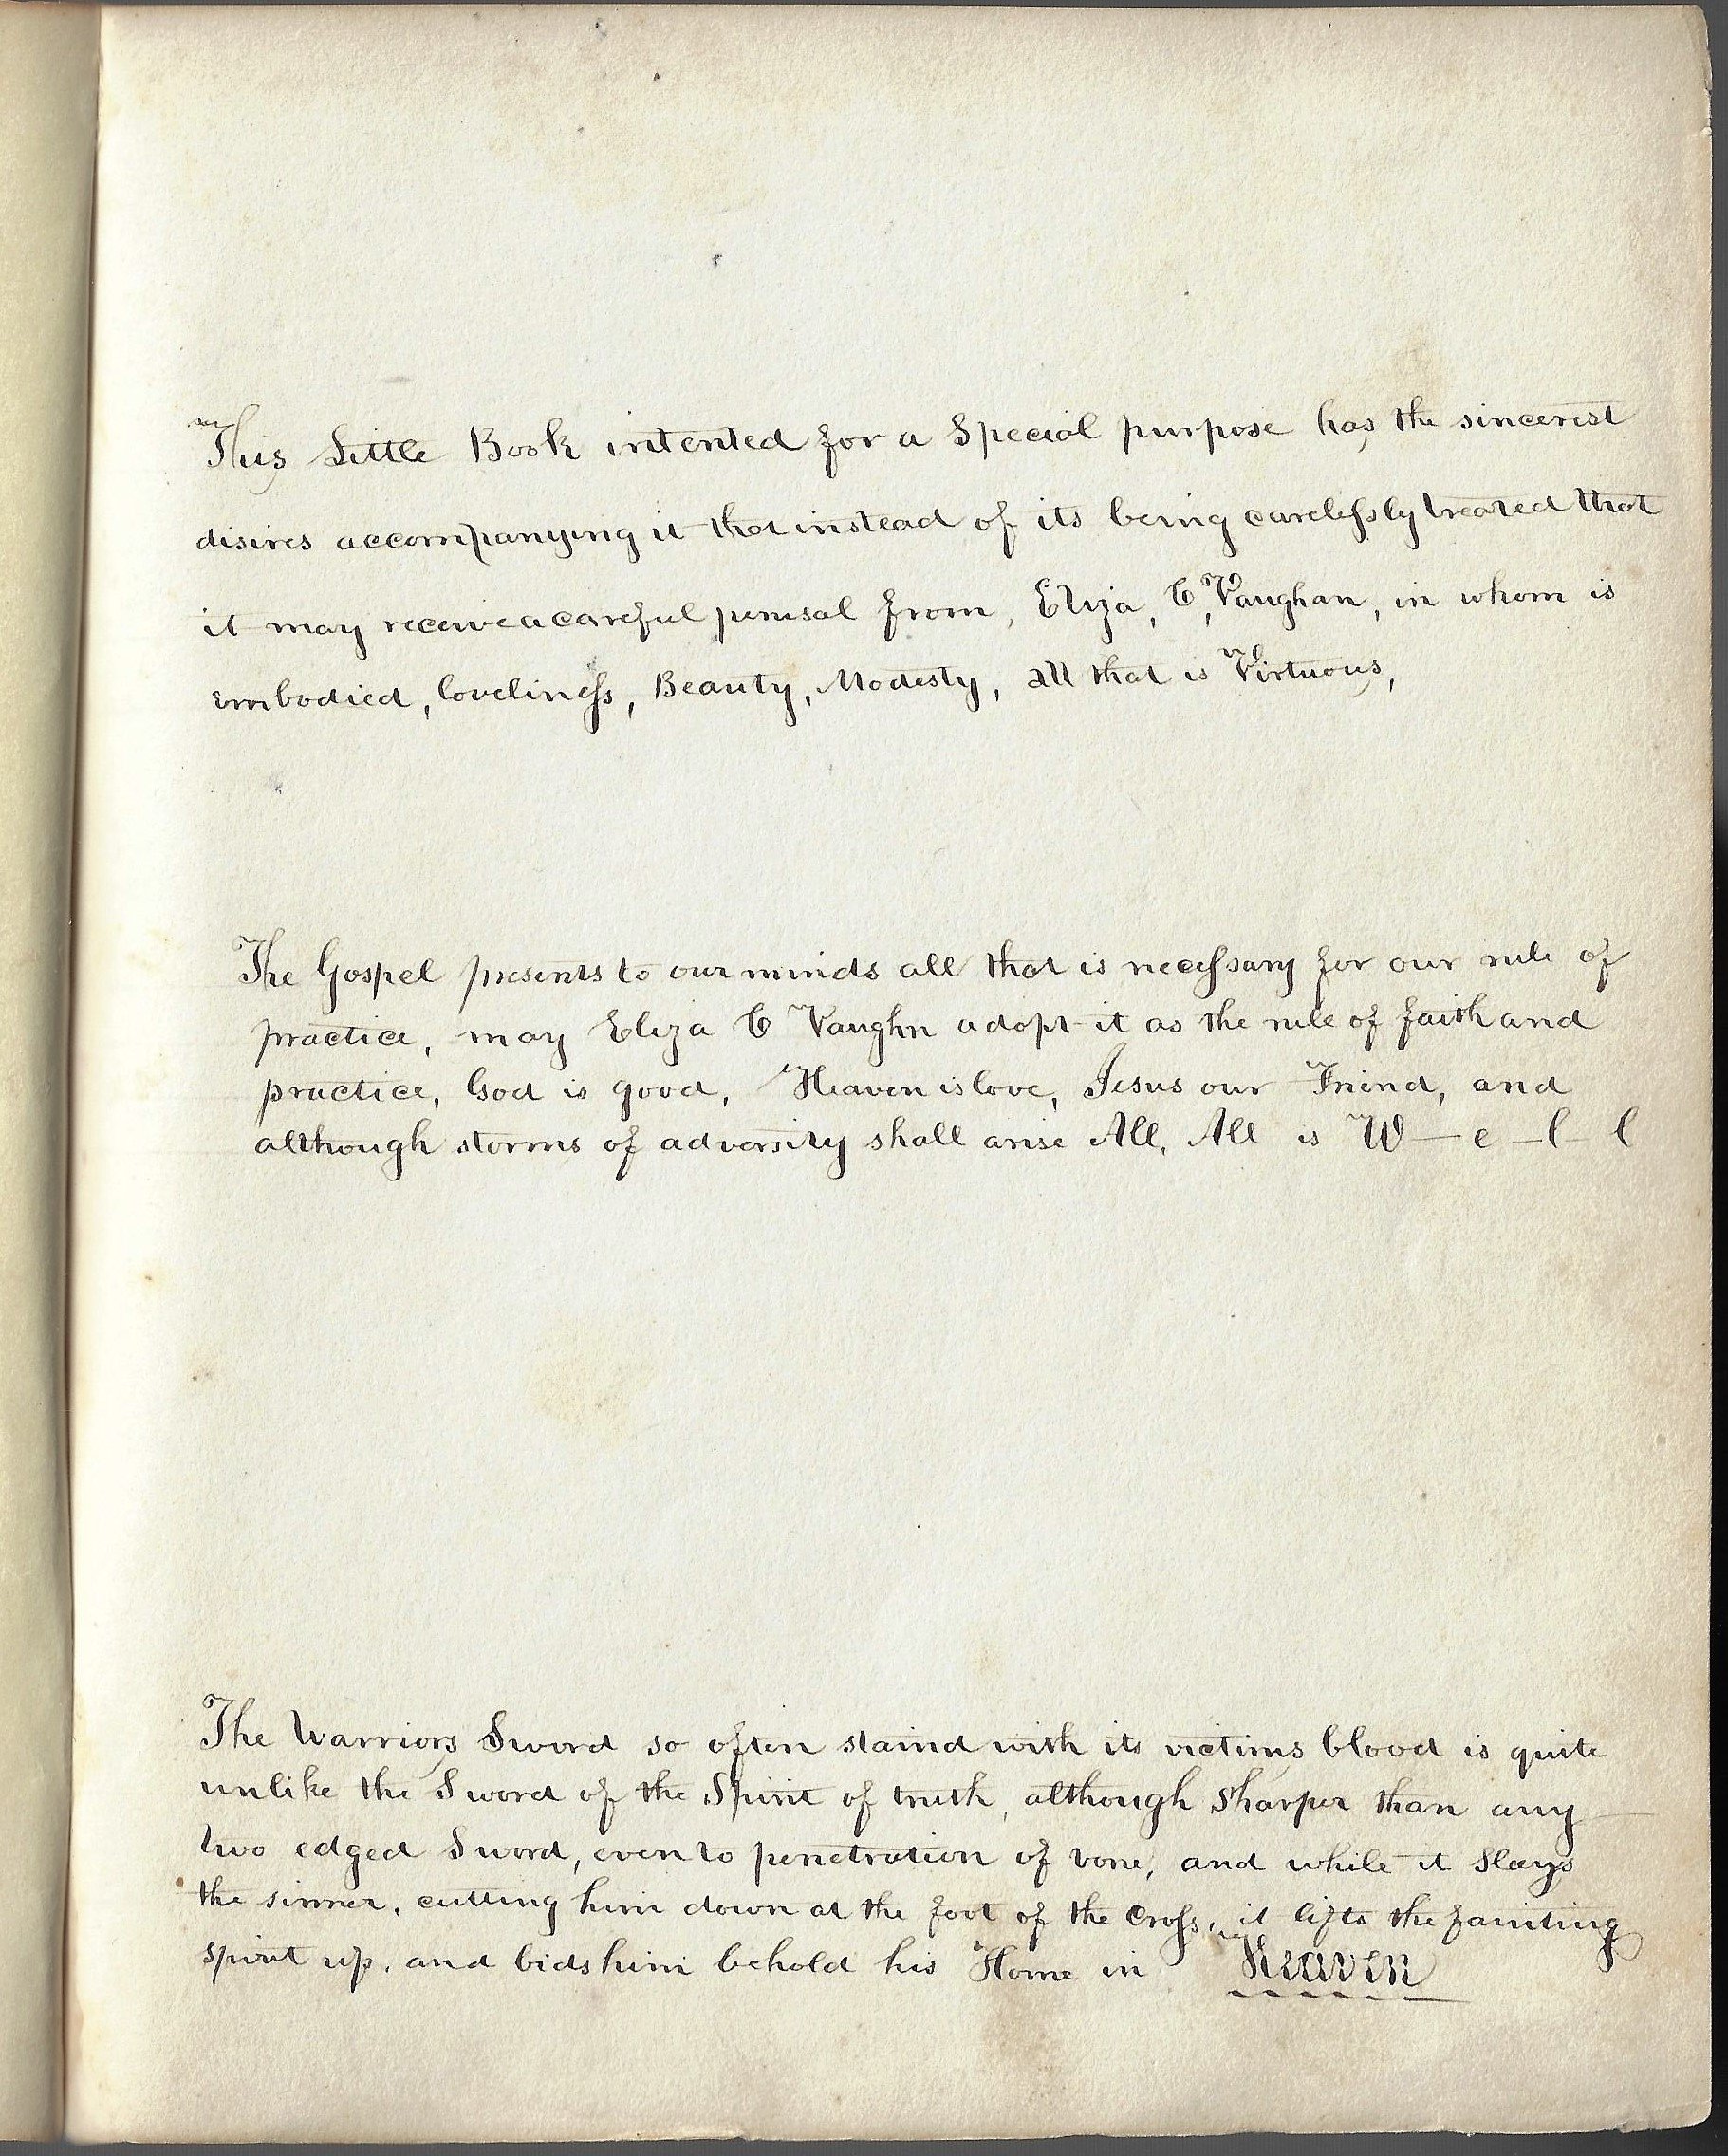 This Little Book intented for a Special purpose has the sincerest
disires accompanying it that instead of its being carelessly treated that
it may receive a careful perusal from, Eliza, C, Vaughan, in whom is
embodied, loveliness, Beauty, Modesty, all that is Virtuous,
The Gospel presents to our minds all that is necessary for our rule of
practice, may Eliza C Vaughn adopt it as the rule of faith and
practice, God is good, Heaven is love, Jesus our Friend, and
although storms of adversity shall arise All, All is W—e—l l
The Warriors Sword so often staind with its victims blood is quite
unlike the Sword of the Spirit of truth, although Sharper than any
two edged Sword, even to penetration of bone, and while it Slays
the sinner, cutting him down at the foot of the Cross, it lifts the fainting
spirit up, and bids him behold his Home in Heaven